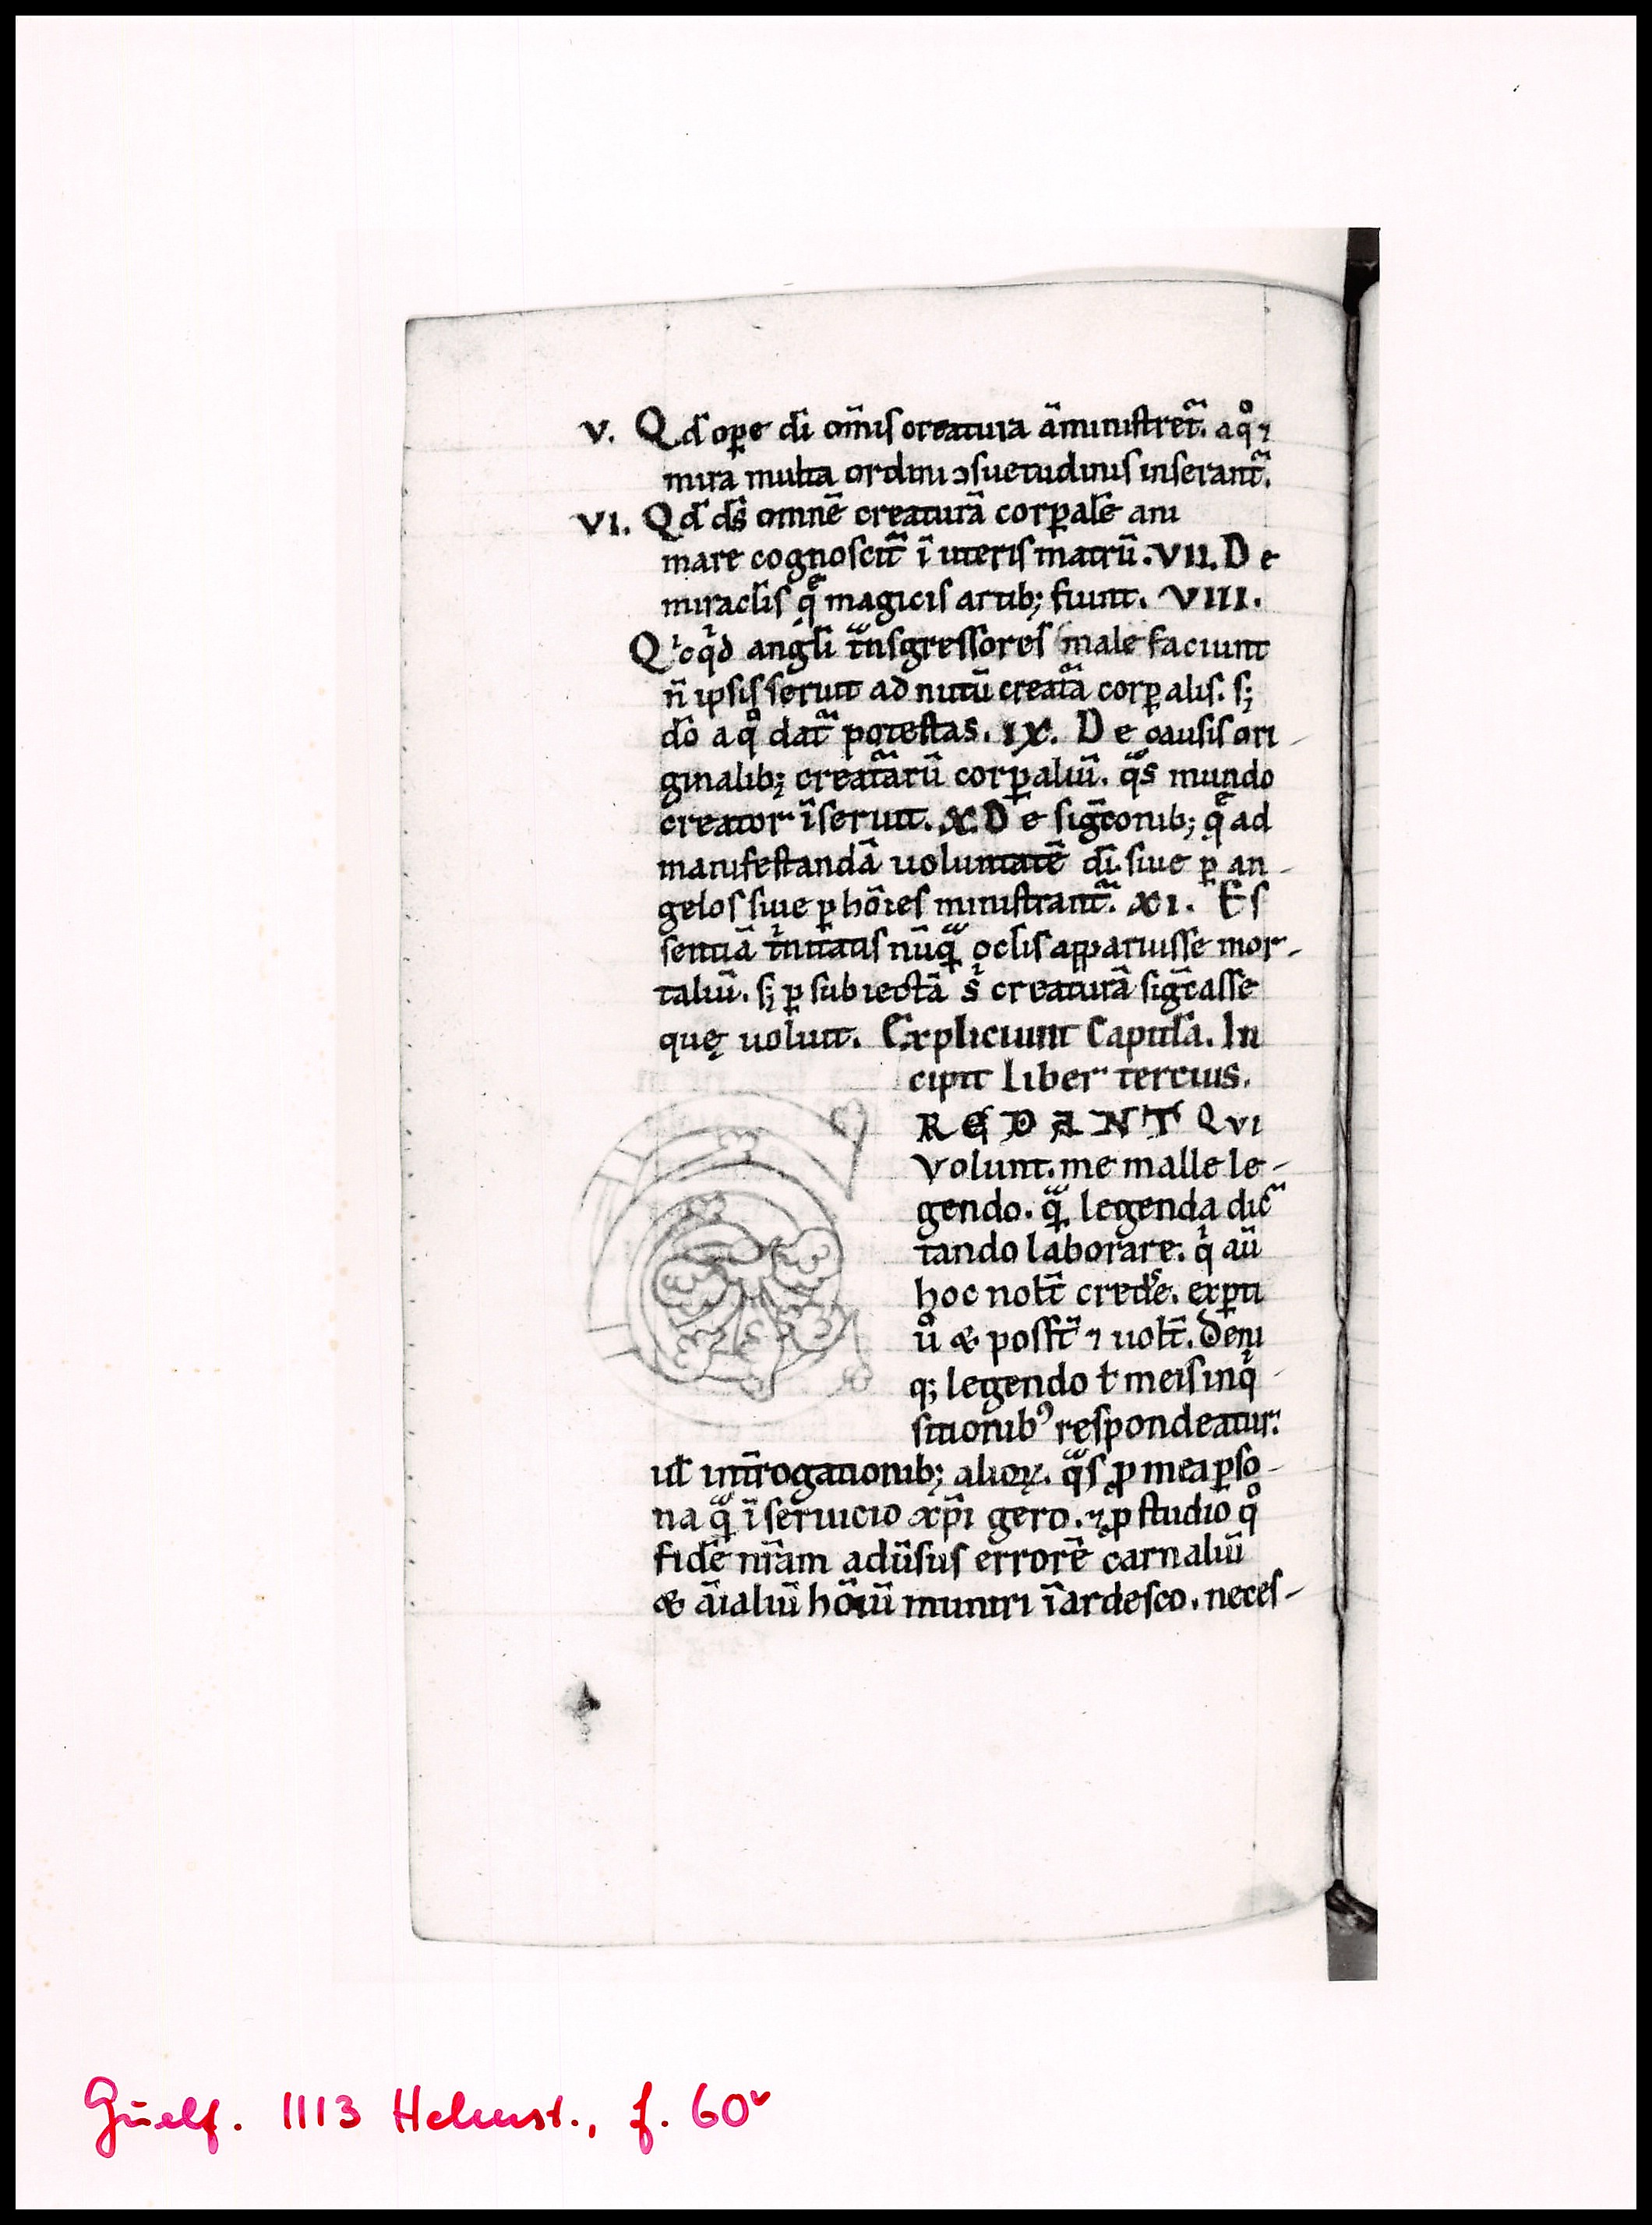 V. Qd̄ ope di om̄is creatura āministret᷑. a qͦ ⁊
mira multa ordini ↄsuetudinis inserant᷑.
VI. Qd̄ ds̄ omnē creaturā corꝑalē ani
mare cognoscit᷑ ī uteris matrū. VII. De
miraclis̄ q̄ magicis artib; fiunt. VIII.
Qͥcqͥd angl̄i tͣnsgressores male faciunt
n̄ ipsis seruit ad nutū creat᷑a corꝑalis. s;
dō a qͦ dat᷑ potestas. IX. De causis ori
ginalib; creat᷑arū corꝑaliū. qͣs mundo
creator īseruit. X. De sigc̄onib; q̄ ad
manifestandā uoluntatē di. siue ꝑ an-
gelos siue ꝑ hōies ministrant᷑. XI. Es
sentiā tͥnitatis nūqͣ oclis̄ apparuisse mor-
taliū. s; ꝑ subiectā sͥ creaturā sigc̄asse
quę uoluit. Expliciunt Capitl̄a. In
cipit liber tercius.
REDANT QVI
Volunt. me malle le-
gendo. qͣ legenda dic
tando laborare. qͥ aū
hoc nolt̄ credͤe. exꝑti
uͦ & posst̄ ⁊ uolt̄. deni
q; legendo ł meis inqͥ
sitionibꝰ respondeatur.
ul̄ int̄rogationib; alioꝝ. qͣs ꝓ mea ꝑso-
na qͣ ī seruicio xp̄i gero. ⁊ ꝓ studio qͦ
fidē nr̄am adūsus errorē carnaliū
& āialiū hōiū muniri īardesco. neces-
Guelf. 1113 Helmst., f. 60ᵛ